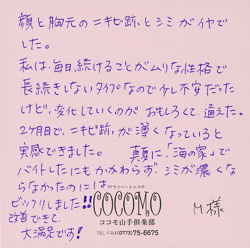 顔と胸元のニキビ跡とシミがイヤで
した。
私は、毎日、続けることがムリな性格で
長続きしないタイプなので少し不安だった
けど、変化していくのが おもしろくて、通えた。
2ヶ月目で、ニキビ跡が薄くなっていると
実感できました。 真夏に「海の家」で
バイトしたにもかかわらず、シミが濃くな
らなかったのには
ビックリしました!!
改善できて、
大満足です!
M様
プライベートエステ
COCOMO
ココモ山手倶楽部
TEL・FAX(0773)75-6675